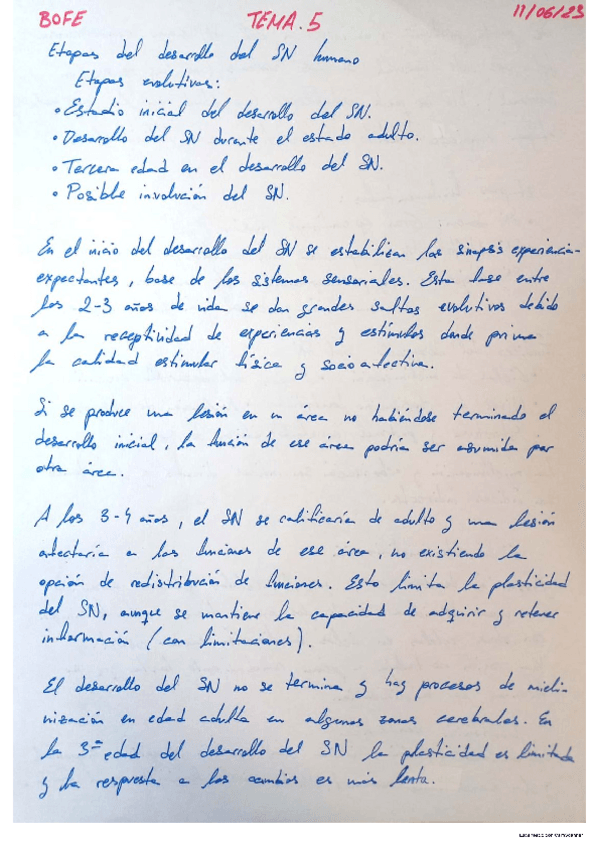 BOFE TEMA.5 11/06/23
Etapas del desarrollo del SN humano
Etapas evolutivas:
• Estadio inicial del desarrollo del SN.
• Desarrollo del SN durante el estado adulto.
• Tercera edad en el desarrollo del SN.
• Posible involución del SN.
En el inicio del desarrollo del SN se estabilizan las sinapsis experiencia-
expectantes, base de los sistemas sensoriales. Esta fase entre
los 2-3 años de vida se dan grandes saltos evolutivos debido
a la receptividad de experiencias y estímulos donde prima
la calidad estimular física y socioafectiva.
Si se produce una lesión en un área no habiéndose terminado el
desarrollo inicial, la función de ese área podría ser asumida por
otra área.
A los 3-4 años, el SN se calificaría de adulto y una lesión
afectaría a las funciones de ese área, no existiendo la
opción de redistribución de funciones. Esto limita la plasticidad
del SN, aunque se mantiene la capacidad de adquirir y retener
información (con limitaciones).
El desarrollo del SN no se termina y hay procesos de mieli-
nización en edad adulta en algunas zonas cerebrales. En
la 3ª edad del desarrollo del SN la plasticidad es limitada
y la respuesta a los cambios es más lenta.